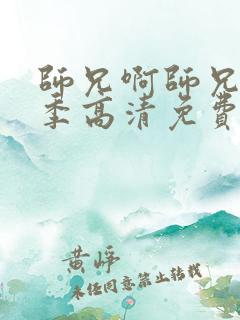 師兄啊師兄
季高清免費
黄嶂
未经同意禁止转载